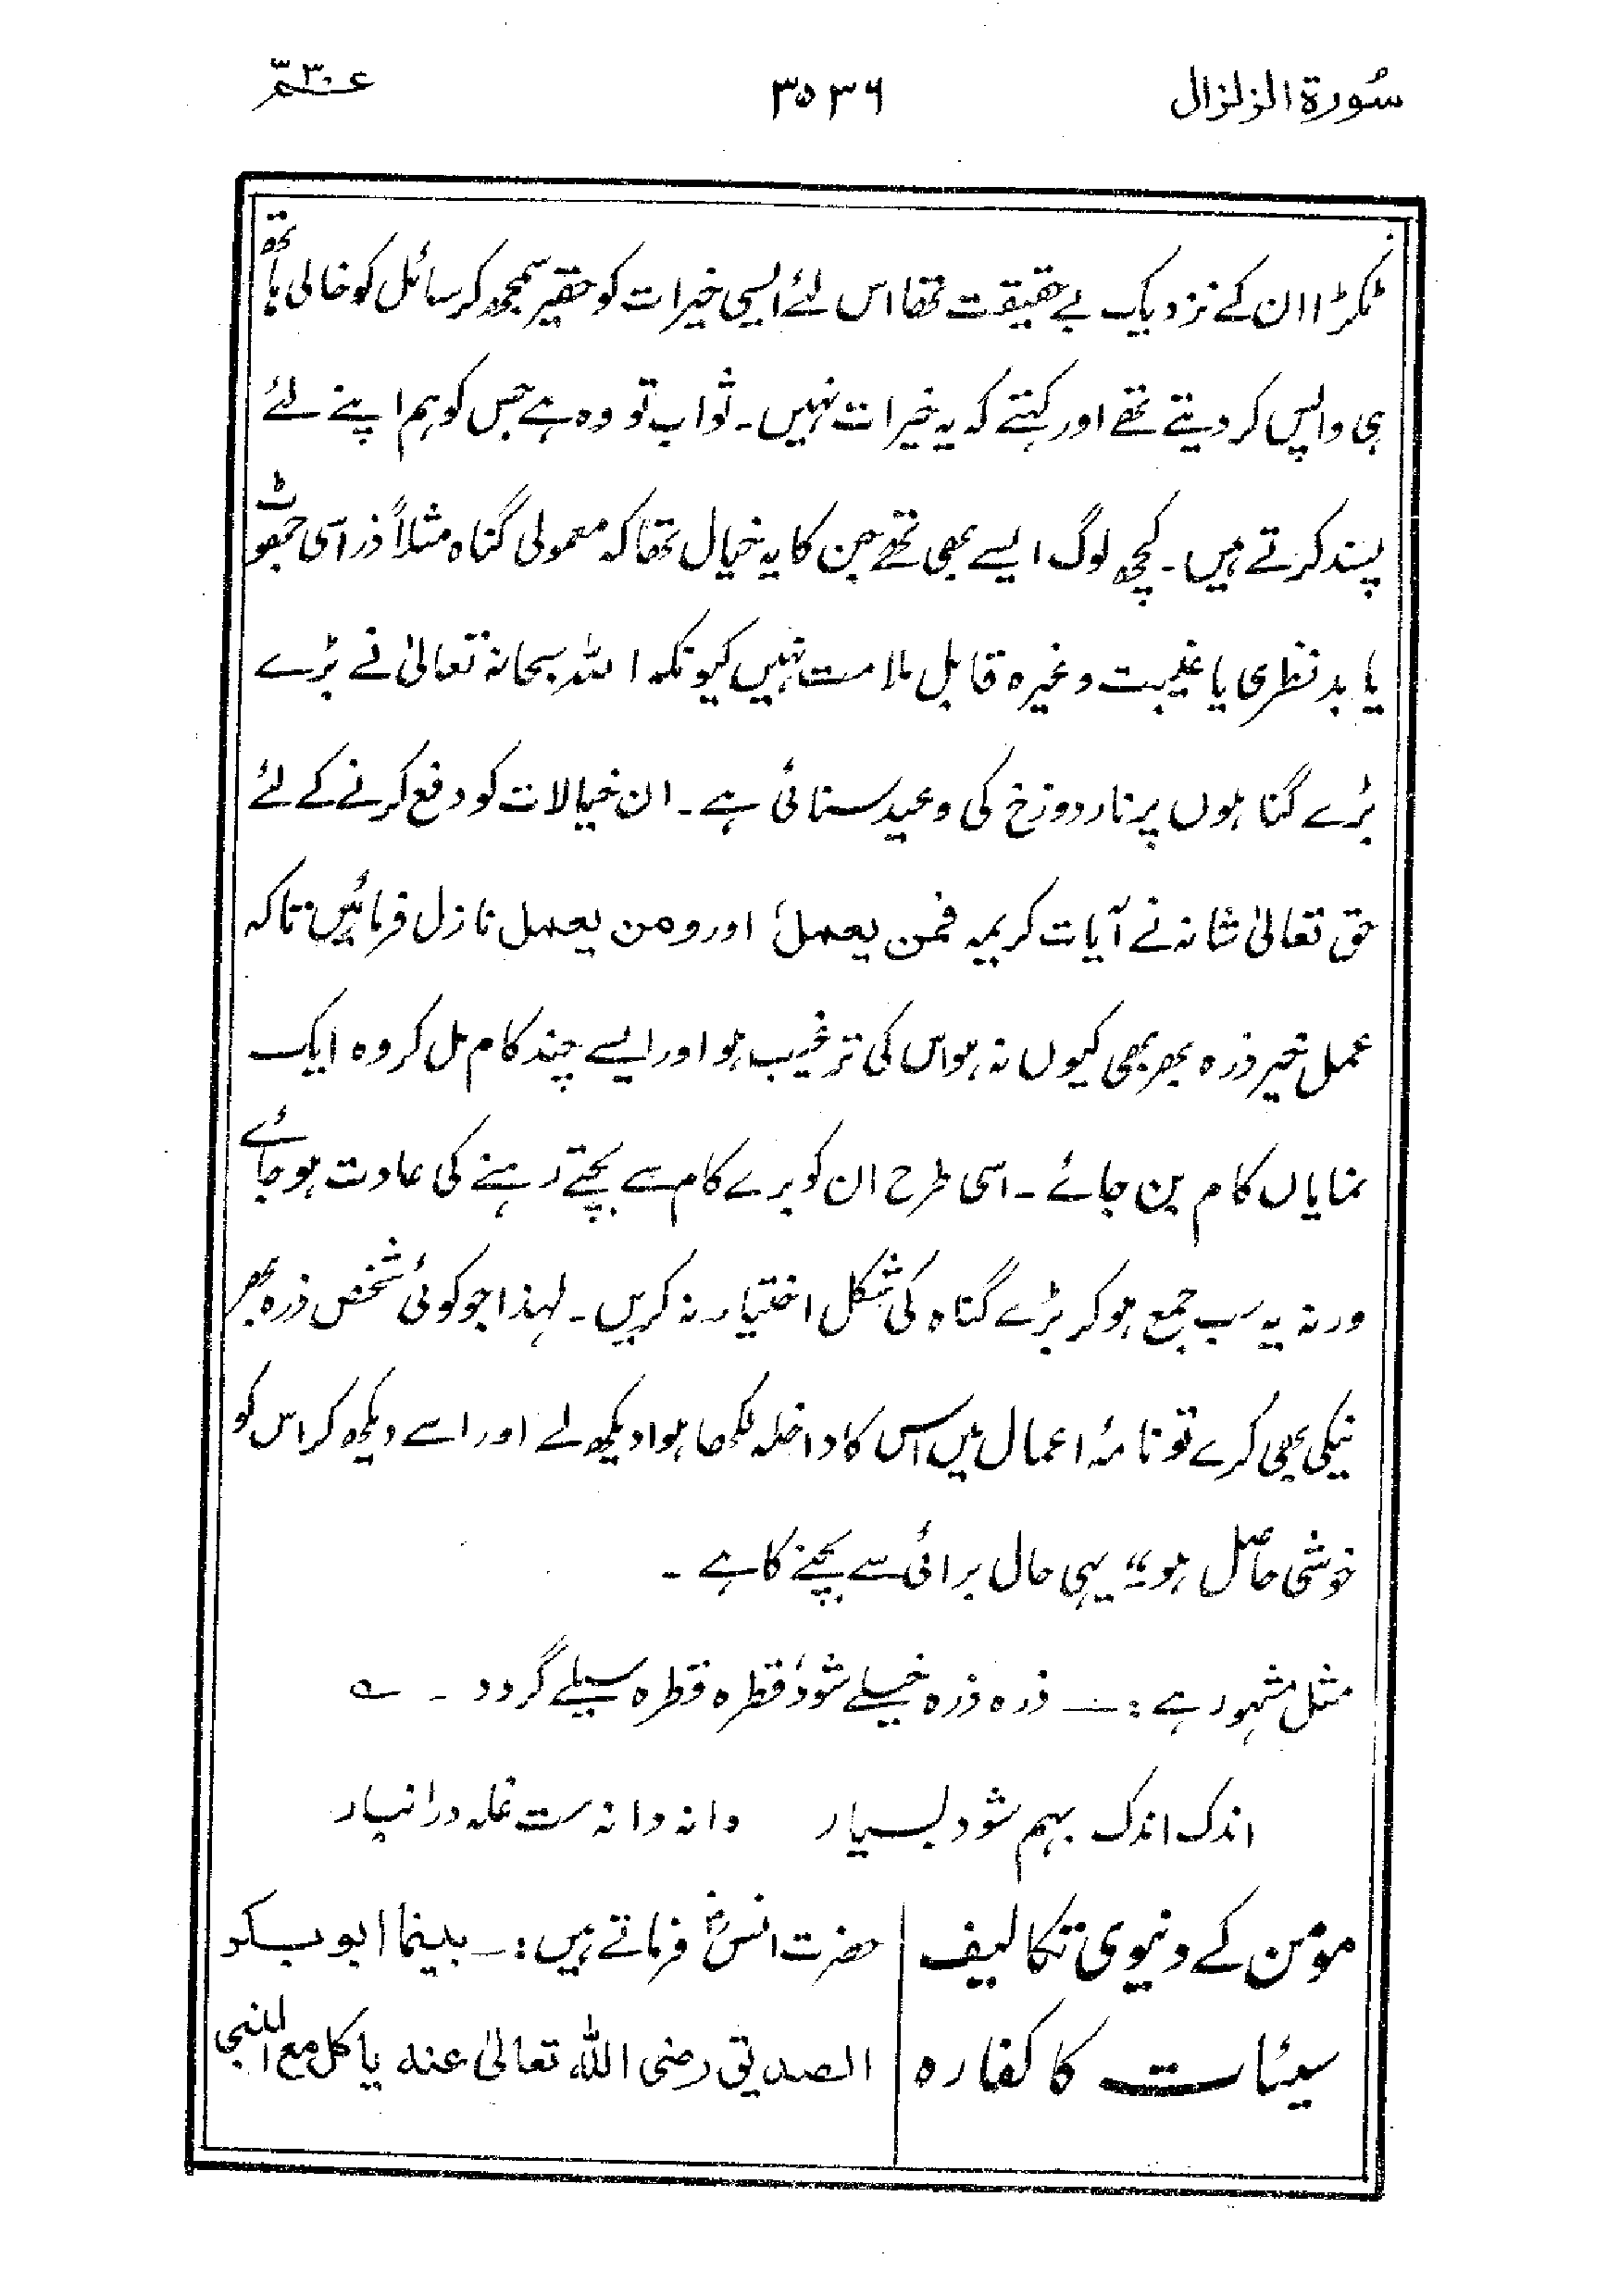 سُورۃ الزلزال
۳۵۳۶
عـــمّ ۳۰
ٹکڑا ان کے نزدیک بے حقیقت تھا اس لئے ایسی خیرات کو حقیر سمجھ کر سائل کو خالی ہاتھ
ہی واپس کر دیتے تھے اور کہتے کہ یہ خیرات نہیں۔ ثواب تو وہ ہے جس کو ہم اپنے لئے
پسند کرتے ہیں۔ کچھ لوگ ایسے بھی تھے جن کا یہ خیال تھا کہ معمولی گناہ مثلاً ذرا سی جھوٹ
یا بد نظری یا غیبت وغیرہ قابل ملامت نہیں کیونکہ اللہ سبحانہ تعالیٰ نے بڑے
بڑے گناہوں پر نار دوزخ کی وعید سنائی ہے۔ ان خیالات کو دفع کرنے کے لئے
حق تعالیٰ شانہ نے آیات کریمہ فمن یعمل اور ومن یعمل نازل فرمائیں تاکہ
عمل خیر ذرہ بھر بھی کیوں نہ ہو اس کی ترغیب ہو اور ایسے چند کام مل کر وہ ایک
نمایاں کام بن جائے۔ اسی طرح ان کو برے کام سے بچتے رہنے کی عادت ہو جائے
ورنہ یہ سب جمع ہو کر بڑے گناہ کی شکل اختیار نہ کریں۔ لہذا جو کوئی شخص ذرہ بھر
نیکی بھی کرے تو نامۂ اعمال میں اس کا داخلہ لکھا ہوا دیکھ لے اور اسے دیکھ کر اس کو
خوشی حاصل ہو" یہی حال برائی سے بچنے کا ہے۔
مثل مشہور ہے :— ذرہ ذرہ خیلے شود قطرہ قطرہ سیلے گردد ۔ ؎
اندک اندک بہم شود بسیار دانہ دانہ ست غلہ در انبار
مومن کے دنیوی تکالیف
سیئات کا کفارہ
حضرت انسؓ فرماتے ہیں :— بینما ابو بکر
الصدیق رضی اللہ تعالیٰ عنه یاکل مع النبی